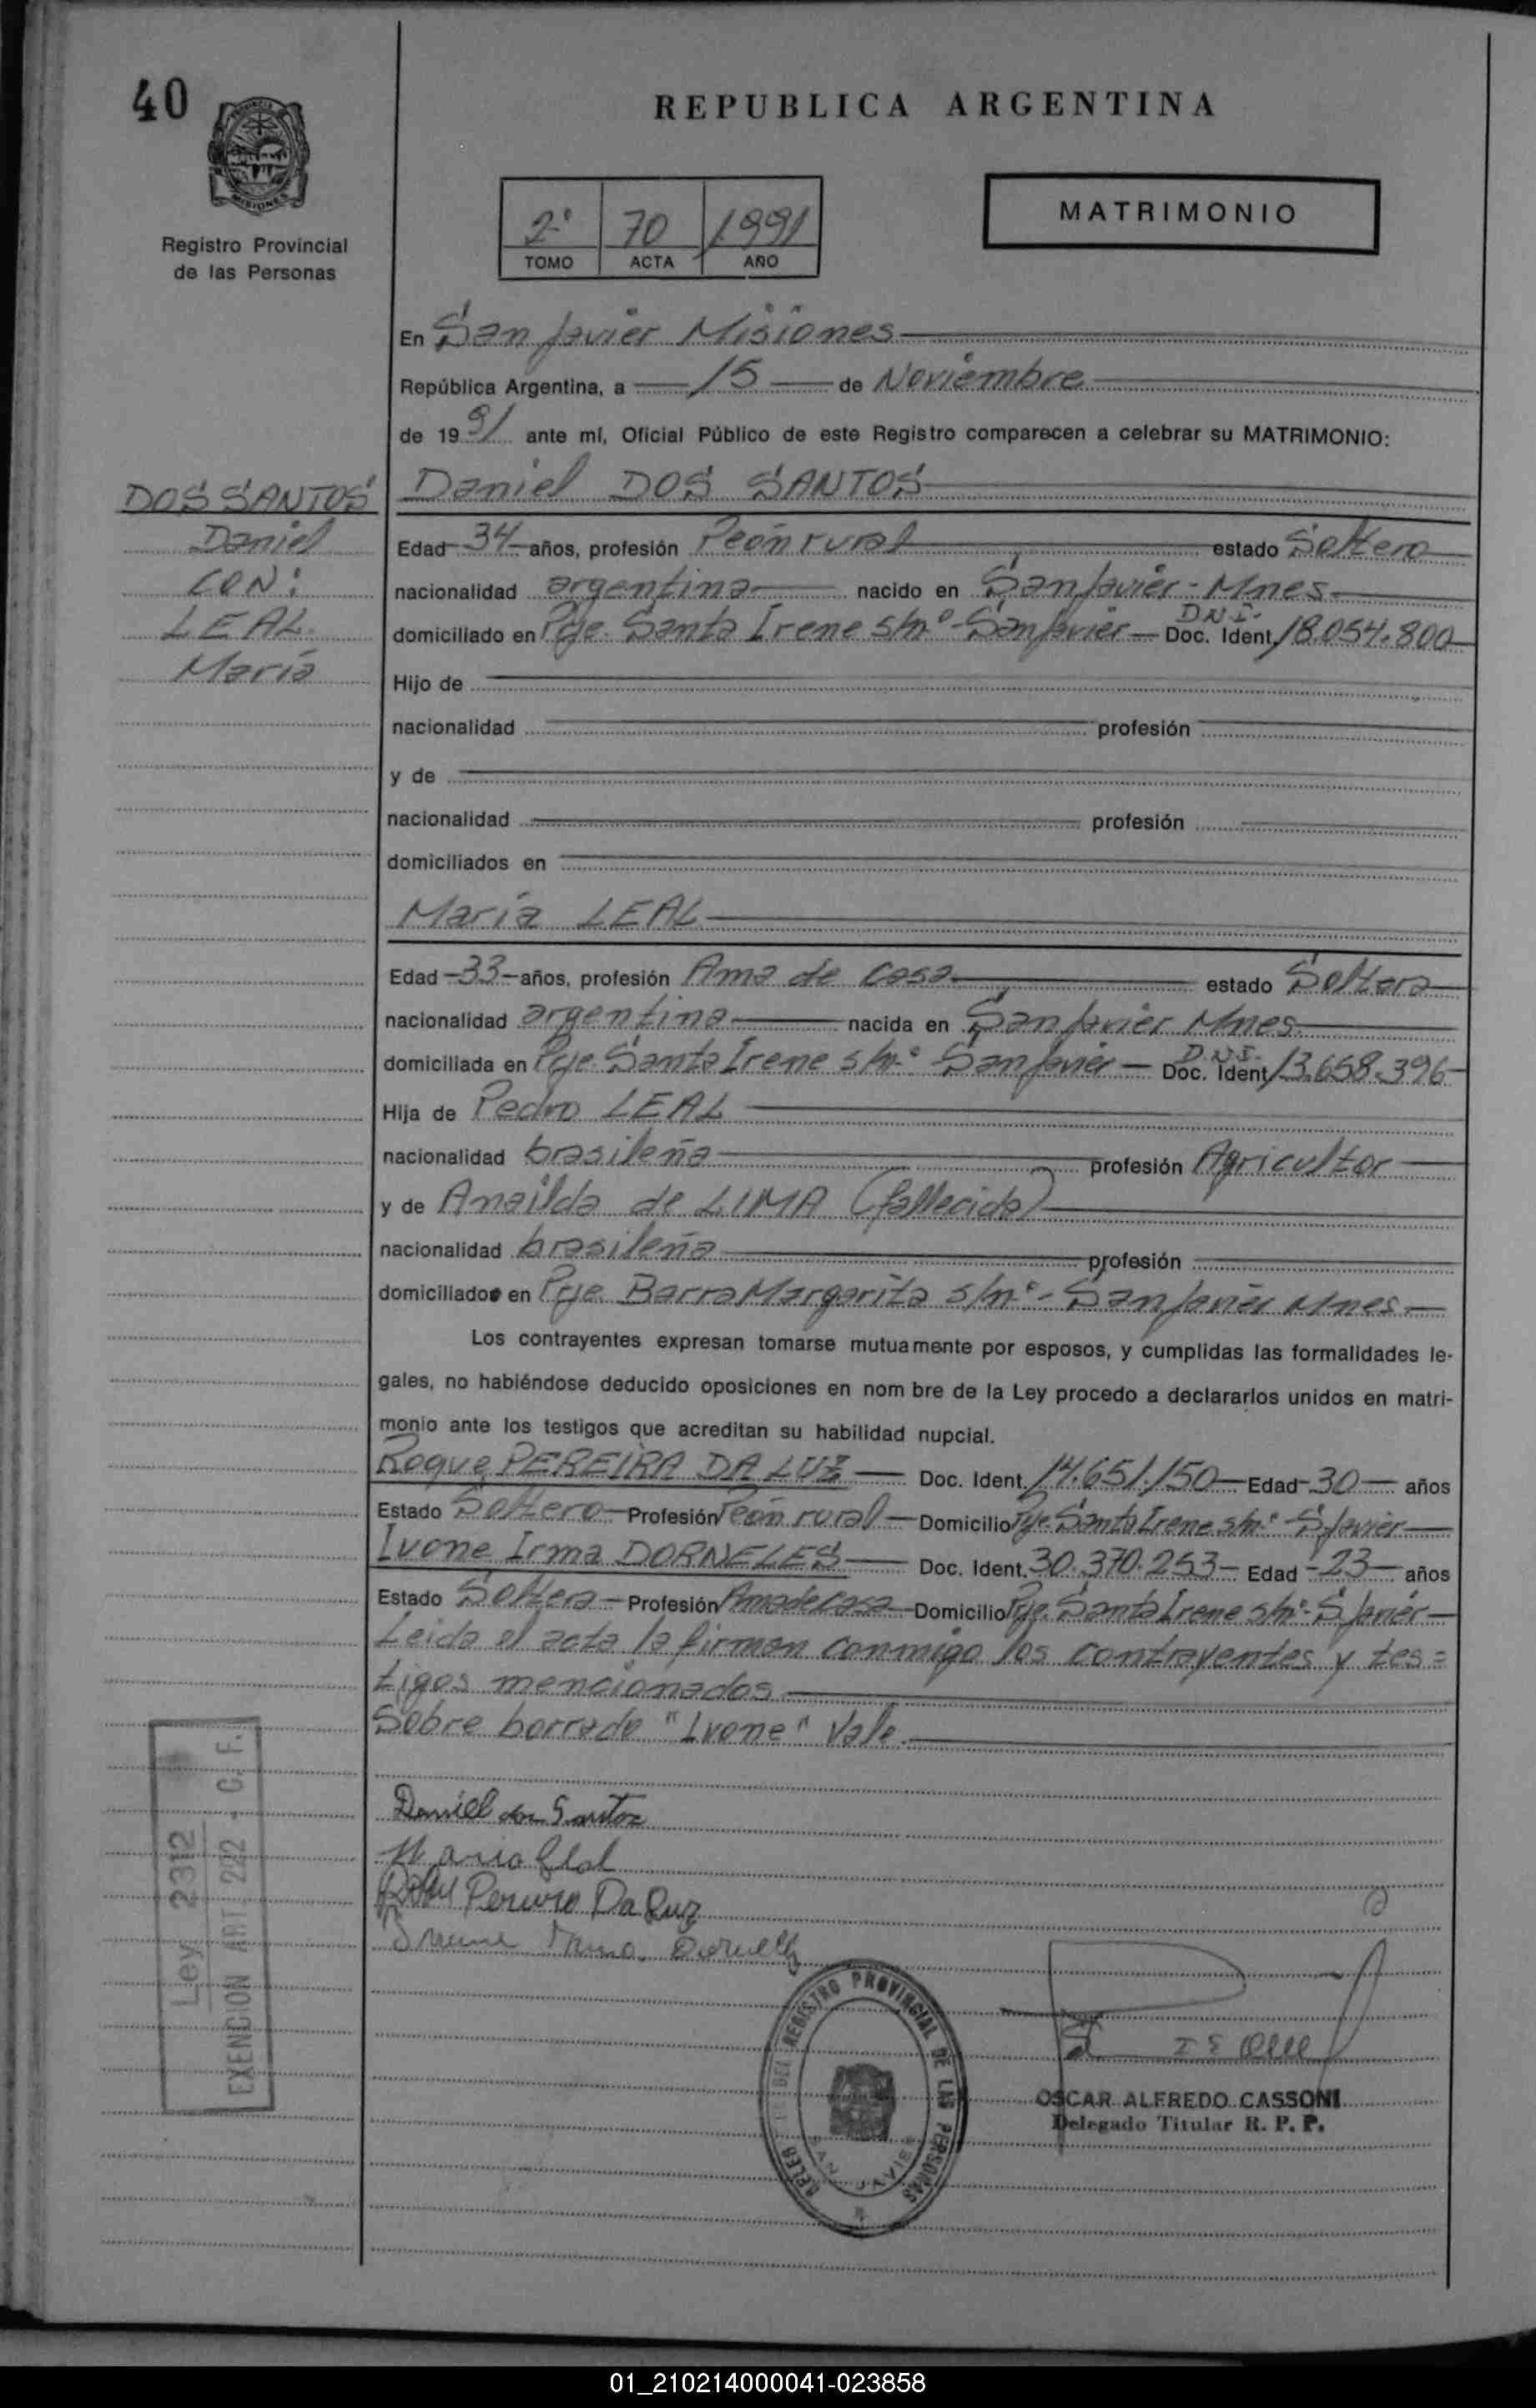 40
REPUBLICA ARGENTINA
MISIONES
Registro Provincial
de las Personas
2º 70 1991
TOMO ACTA AÑO
MATRIMONIO
En San Javier Misiones
República Argentina, a 15 de Noviembre
de 1991 ante mí, Oficial Público de este Registro comparecen a celebrar su MATRIMONIO:
DOS SANTOS
Daniel
CON:
LEAL
María
Daniel DOS SANTOS
Edad 34 años, profesión Peón rural estado Soltero
nacionalidad argentina nacido en San Javier - Mnes
D.N.I.
domiciliado en Pje. Santa Irene s/nº - San Javier - Doc. Ident. 18.054.800
Hijo de
nacionalidad profesión
y de
nacionalidad profesión
domiciliados en
María LEAL
Edad 33 años, profesión Ama de casa estado Soltera
nacionalidad argentina nacida en San Javier Mnes
D.N.I.
domiciliada en Pje. Santa Irene s/nº San Javier - Doc. Ident. 13.658.396
Hija de Pedro LEAL
nacionalidad brasileña profesión Agricultor
y de Anailda de LIMA (fallecida)
nacionalidad brasileña profesión
domiciliados en Pje. Barra Margarita s/nº - San Javier Mnes
Los contrayentes expresan tomarse mutuamente por esposos, y cumplidas las formalidades le-
gales, no habiéndose deducido oposiciones en nom bre de la Ley procedo a declararlos unidos en matri-
monio ante los testigos que acreditan su habilidad nupcial.
Roque PEREIRA DA LUZ Doc. Ident. 14.651.150 Edad 30 años
Estado Soltero Profesión Peón rural Domicilio Pje. Santa Irene s/nº - S Javier
Ivone Irma DORNELES Doc. Ident. 30.370.253 Edad 23 años
Estado Soltera Profesión Ama de casa Domicilio Pje. Santa Irene s/nº - S Javier
Leida el acta la firman conmigo los contrayentes y tes=
tigos mencionados
Sobre borrado "Ivone" Vale
Daniel dos Santos
Maria Leal
Pereira Da Luz
Ley 2312
EXENCION ART. 222 - C.F.
DEL REGISTRO PROVINCIAL DE LAS PERSONAS
SAN JAVIER
OSCAR ALFREDO CASSONI
Delegado Titular R. P. P.
01_210214000041-023858